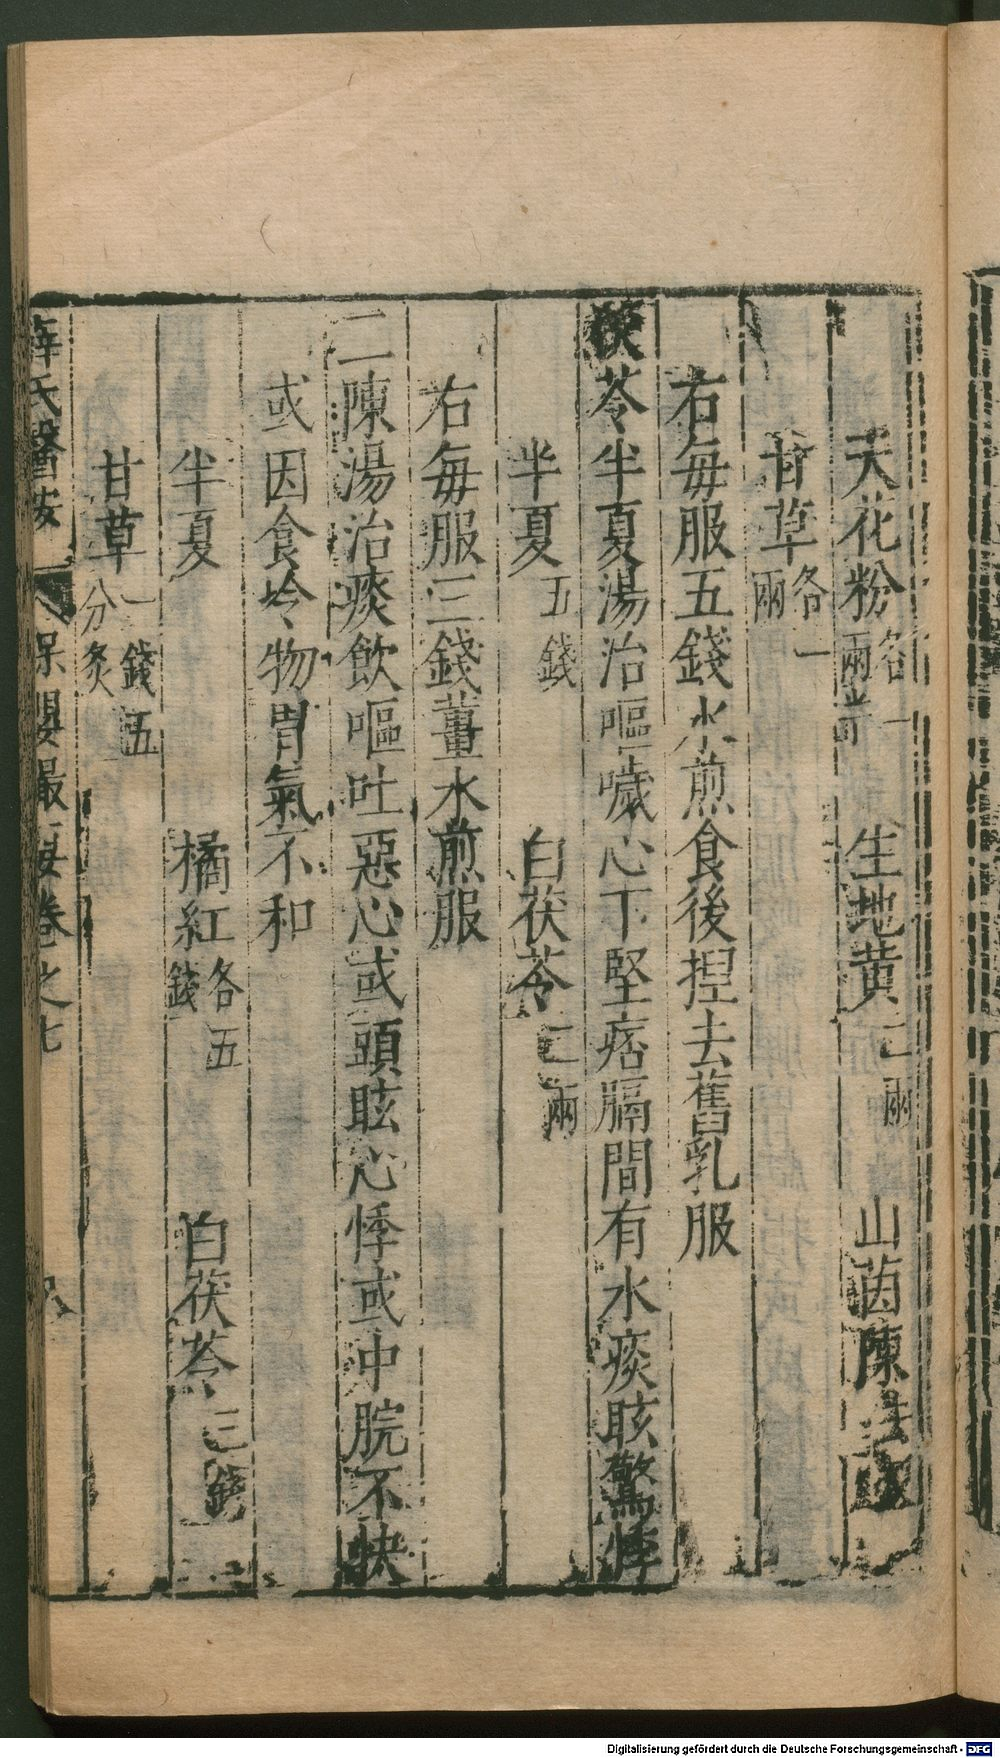 天花粉各一兩半 生地黄二兩 山茵陳去
甘草各一兩
右每服五錢水煎食後捏去舊乳服
茯苓半夏湯治嘔噦心下堅痞膈間有水痰眩驚悸
半夏五錢 白茯苓二兩
右每服三錢薑水煎服
二陳湯治痰飲嘔吐惡心或頭眩心悸或中脘不快
或因食冷物胃氣不和
半夏 橘紅各五錢 白茯苓三錢
甘草一錢五分炙
薛氏醫按 保嬰撮要卷之七 八
Digitalisierung gefördert durch die Deutsche Forschungsgemeinschaft - DFG